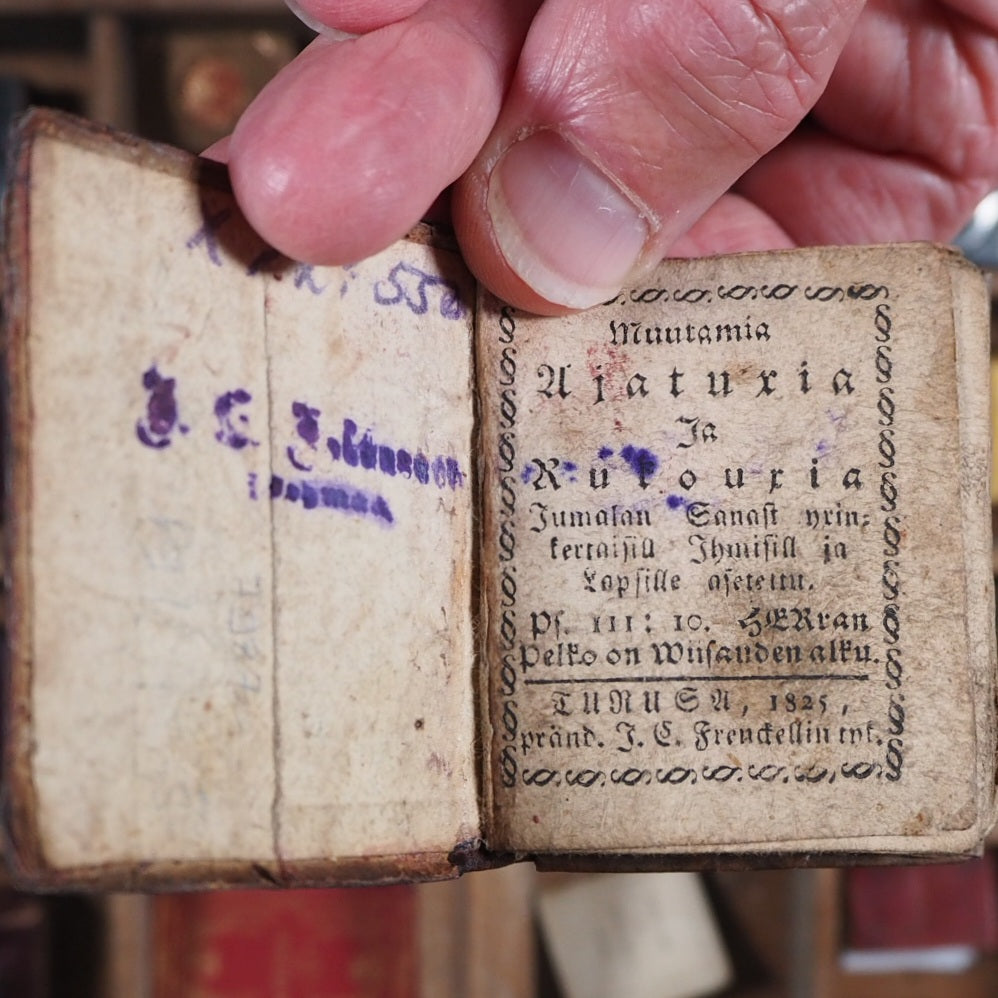 558
J. C.
Muutamia
Ajatuxia
Ja
Rukouxia
Jumalan Sanast yxin-
kertaisill Ihmisill ja
Lapsille asetettu.
Ps. 111: 10. HERran
Pelko on Wiisauden alku.
TURUSA, 1825,
pränd. J. C. Frenckellin tyk.